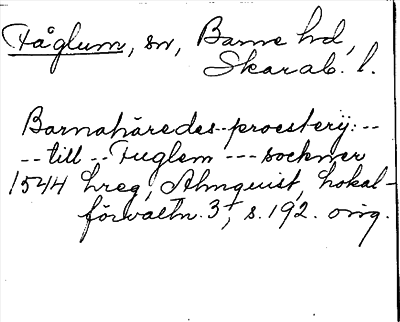 Fåglum, sn, Barne hd,
Skarab. l.
Barnahäredes-proesterij: --
-- till -- Fuglem --- sockner
1544 hreg, Almquist, Lokal-
förvaltn. 3, s. 192. orig.